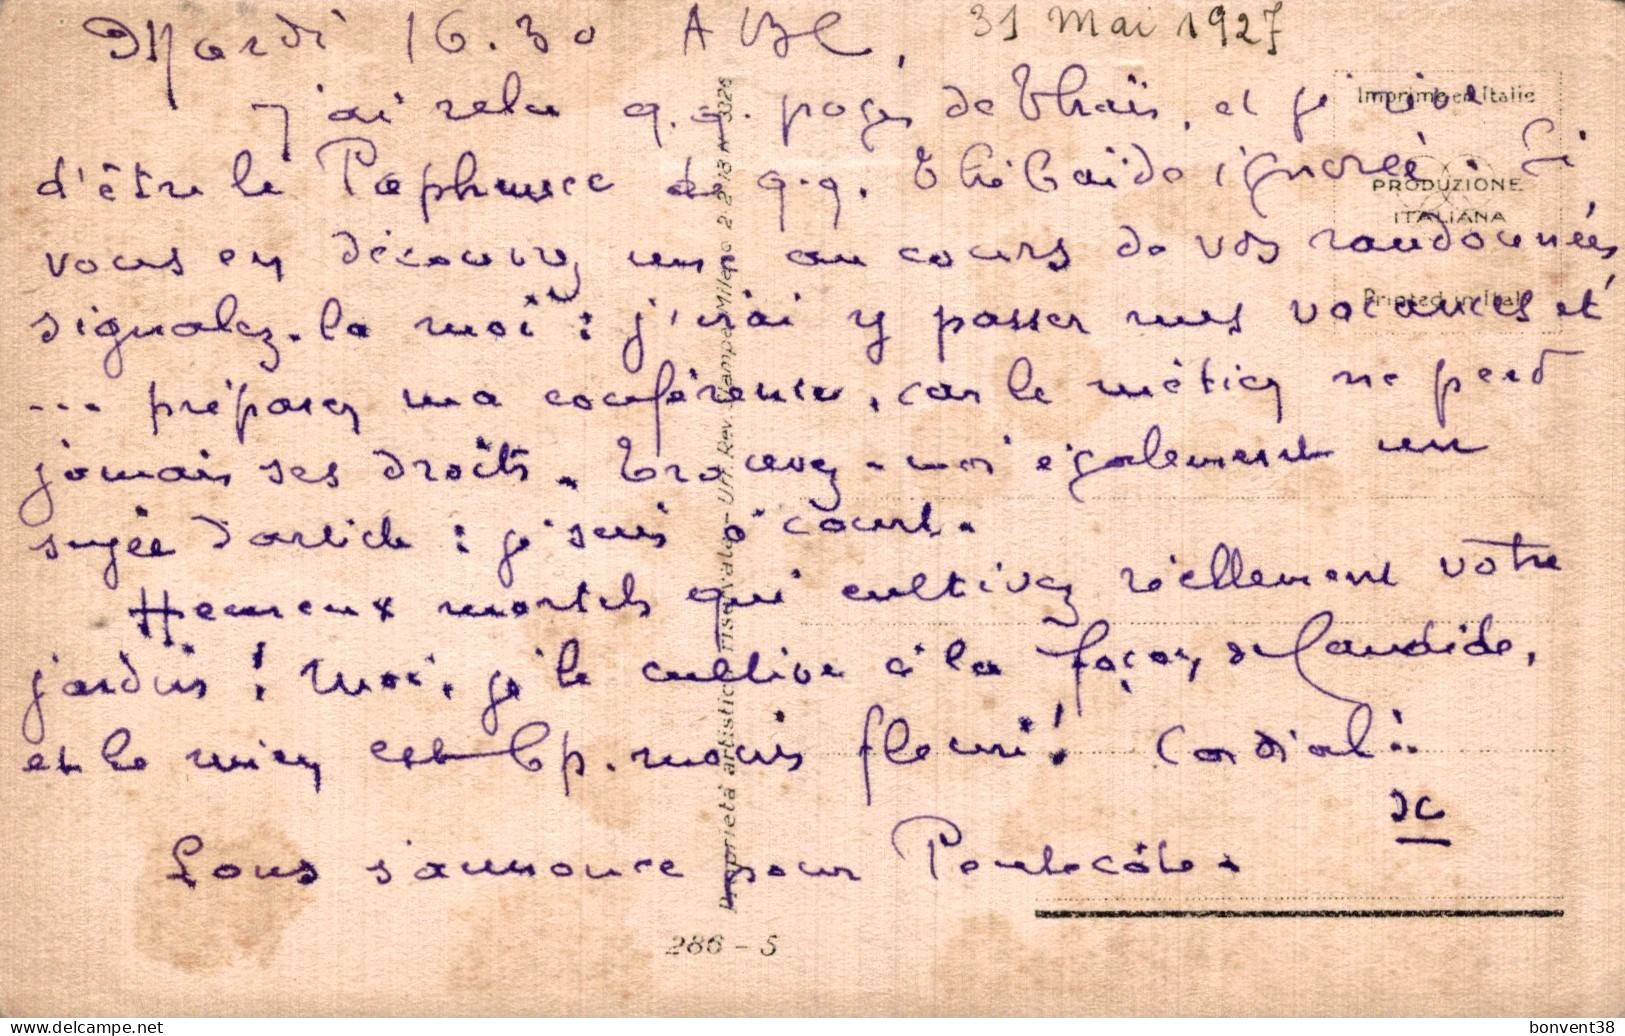 Mardi 16.30 31 Mai 1927
j'ai relu q.q. pages de Thaïs, et je rêve
d'être le Paphnuce de q.q. Thébaïde ignorée. Si
vous en découvrez une au cours de vos randonnées
signalez-la moi : j'irai y passer mes vacances et
... préparer ma conférence, car le métier ne perd
jamais ses droits. Trouvez-moi également un
sujet d'article : je suis à court.
Heureux mortels qui cultivez réellement votre
jardin ! Moi, je le cultive à la façon de Candide,
et le mien est bp. moins fleuri ! Cordial.
Lous s'annonce pour Pentecôte.
Imprimé en Italie
PRODUZIONE
ITALIANA
Printed in Italy
Proprietà artistica riservata - Uff. Rev. Stampa Milano 2 2 918 N 3326
286 - 5
bonvent38